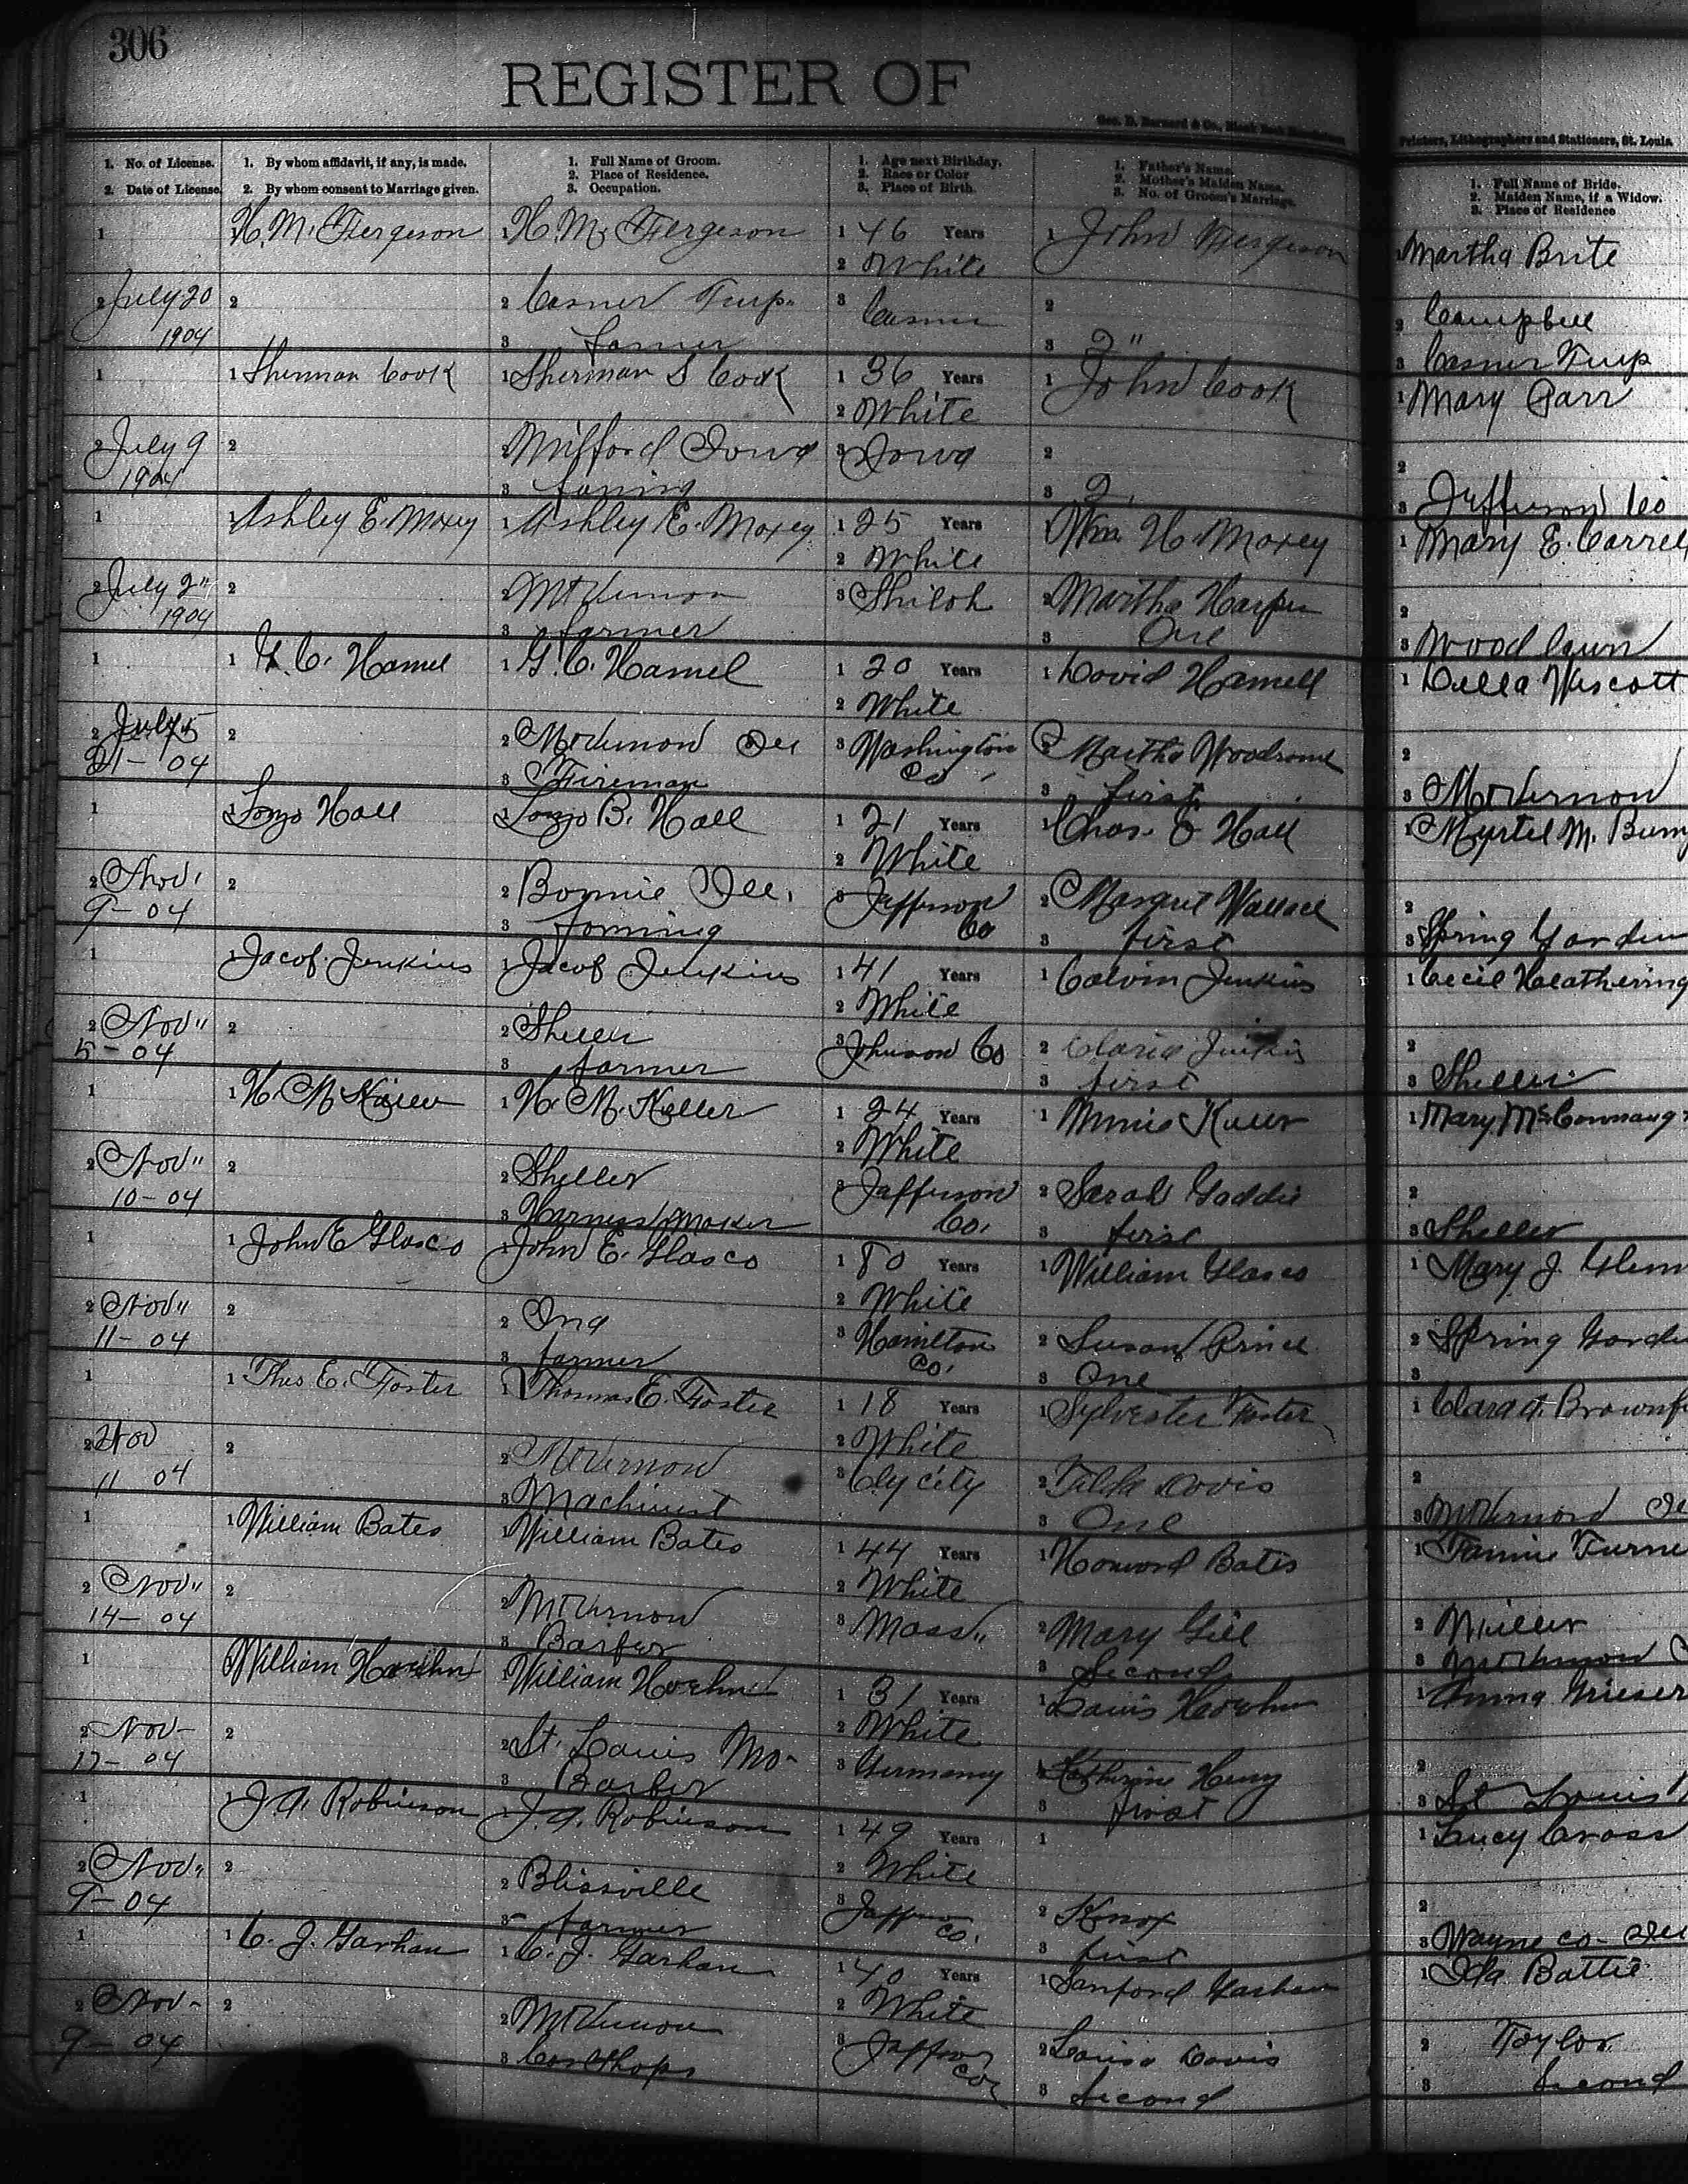 306
REGISTER OF
Geo. D. Barnard & Co., Blank Book
Printers, Lithographers and Stationers, St. Louis
1. No. of License.
2. Date of License.
1. By whom affidavit, if any, is made.
2. By whom consent to Marriage given.
1. Full Name of Groom.
2. Place of Residence.
3. Occupation.
1. Age next Birthday.
2. Race or Color
3. Place of Birth.
1. Father's Name.
2. Mother's Maiden Name.
3. No. of Groom's Marriage.
1. Full Name of Bride.
2. Maiden Name, if a Widow.
3. Place of Residence
1 1 H. M. Fergeson 1 H. M. Fergeson 1 46 Years 1 John Fergeson 1 Martha Brite
2 White
2 July 20 2 2 Casner Turp. 3 Casner 2 2 Campbell
1904 3 farmer 3 2" 3 Casner Turp
1 1 Sherman Cook 1 Sherman S Cook 1 36 Years 1 John Cook 1 Mary Parr
2 White
2 July 9 2 2 Milford Iowa 3 Iowa 2 2
1904 3 faming 3 2 3 Jefferson Co
1 1 Ashley E. Moxey 1 Ashley E. Moxey 1 25 Years 1 Wm. H. Moxey 1 Mary E. Carrell
2 White
2 July 2" 2 2 Mt Vernon 3 Shiloh 2 Martha Harper 2
1904 3 farmer 3 One 3 Wood lawn
1 1 G. C. Hamel 1 G. C. Hamel 1 20 Years 1 David Hamell 1 Della Wescott
2 White
2 July 2 2 Mt Vernon Ill 3 Washington 2 Martha Woodrome 2
21- 04 3 Fireman Co 3 first 3 Mt Vernon
1 1 Lonzo Hall 1 Lonzo B. Hall 1 21 Years 1 Chas. E Hall 1 Myrtel M.
2 White
2 Nov. 2 2 Bonnie Ill. 3 Jefferson 2 Margret Wallace 2
9- 04 3 farming Co 3 first 3 Spring Garden
1 1 Jacob Jenkins 1 Jacob Jenkins 1 41 Years 1 Calvin Jenkins 1 Cecil Heathering
2 White
2 Nov" 2 2 Sheller 3 Johnson Co 2 Claria Jenkins 2
5- 04 3 farmer 3 first 3 Sheller
1 1 H. M Keller 1 H. M. Keller 1 24 Years 1 Keller 1 Mary McConnaug
2 White
2 Nov" 2 2 Sheller 3 Jefferson 2 Sarah Gaddie 2
10- 04 3 Harness maker Co. 3 first 3 Sheller
1 1 John E Glasco 1 John E. Glasco 1 80 Years 1 William Glasco 1 Mary J. Glenn
2 White
2 Nov" 2 2 Ina 3 Hamilton 2 Susan Prince 2 Spring Garden
11- 04 3 farmer Co. 3 One 3
1 1 Thos E. Foster 1 Thomas E. Foster 1 18 Years 1 Sylvester Foster 1 Clara A. Brownf
2 White
2 Nov 2 2 Mt Vernon 3 Cly city 2 Tilda Davis 2
11 04 3 Machinist 3 One 3 Mt Vernon Ill
1 1 William Bates 1 William Bates 1 44 Years 1 Howard Bates 1 Fannie Turne
2 White
2 Nov" 2 2 Mt Vernon 3 Mass" 2 Mary Gill 2 Miller
14- 04 3 Barber 3 Second 3 Mt Vernon
1 1 William Hoehn 1 William Hoehn 1 31 Years 1 Louis Hoehn 1 Anna Grieser
2 White
2 Nov- 2 2 St. Louis Mo- 3 Germany 2 Kathrine Henry 2
17- 04 3 Barber 3 first 3 St Louis
1 1 J. A. Robinson 1 J. A. Robinson 1 49 Years 1 1 Lucy Cross
2 White
2 Nov" 2 2 Blissville 3 Jefferson 2 Knox 2
9- 04 3 farmer Co. 3 first 3 Wayne Co- Ill
1 1 C. J. Garhan 1 C. J. Garhan 1 40 Years 1 Sanford Garhan 1 Ida Battie
2 White
2 Nov- 2 2 Mt Vernon 3 Jefferson 2 Louisa Davis 2 Taylor
9- 04 3 Car Shops Co 3 Second 3 Second